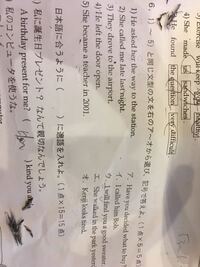 4) She made us sandwiches.
5) He found the question very difficult
6. 1)~5)と同じ文型の文を右のア~オから選び、記号で答えよ。(1点×5=5点)
1) He asked her the way to the station.
2) She called me late last night.
3) They drove to the airport.
4) He left the door open.
5) He became a teacher in 2001.
ア. Have you decided what to buy
イ. I called him Bob.
ウ. I will find you a good sweater.
エ. She walked in the park yesterday
オ. Kenji looks tired.
日本語に合うように( )に適語を入れよ。(1点×15=15点)
) 私に誕生日プレゼント?なんて親切なんでしょう。
A birthday present for me? ( ) kind you
私のコンピュータを使うな。